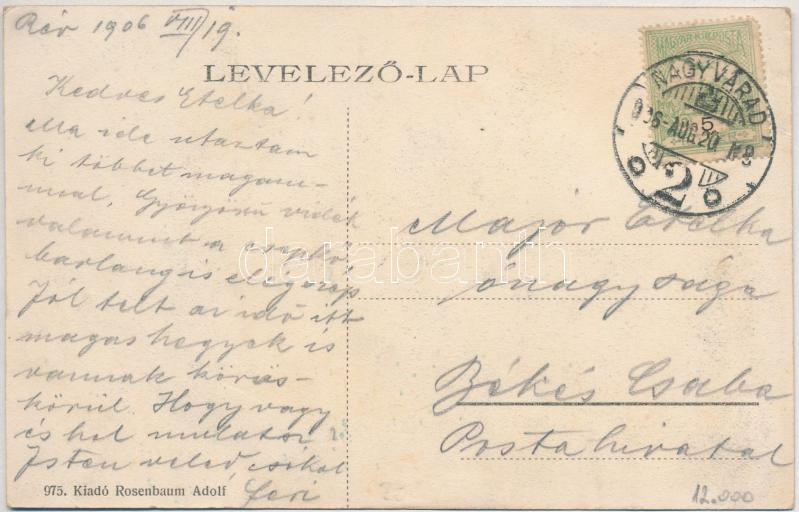 Rév 1906 VIII/19.
LEVELEZŐ-LAP
Kedves Etelka!
Ma ide utaztam
ki többet magam-
mal. Gyönyörű vidék
valamint a csepkő
barlang is elég szép
Jól telt az idő itt
magas hegyek is
vannak körös-
körül. Hogy vagy
és hol mulatoz?
Isten veled, csókol
Feri
975. Kiadó Rosenbaum Adolf
MAGYAR KIR. POSTA
5
NAGYVÁRAD
906 AUG. 20.
2
Major Etelka
őnagysága
Békés Csaba
Postahivatal
12.000
darabanth